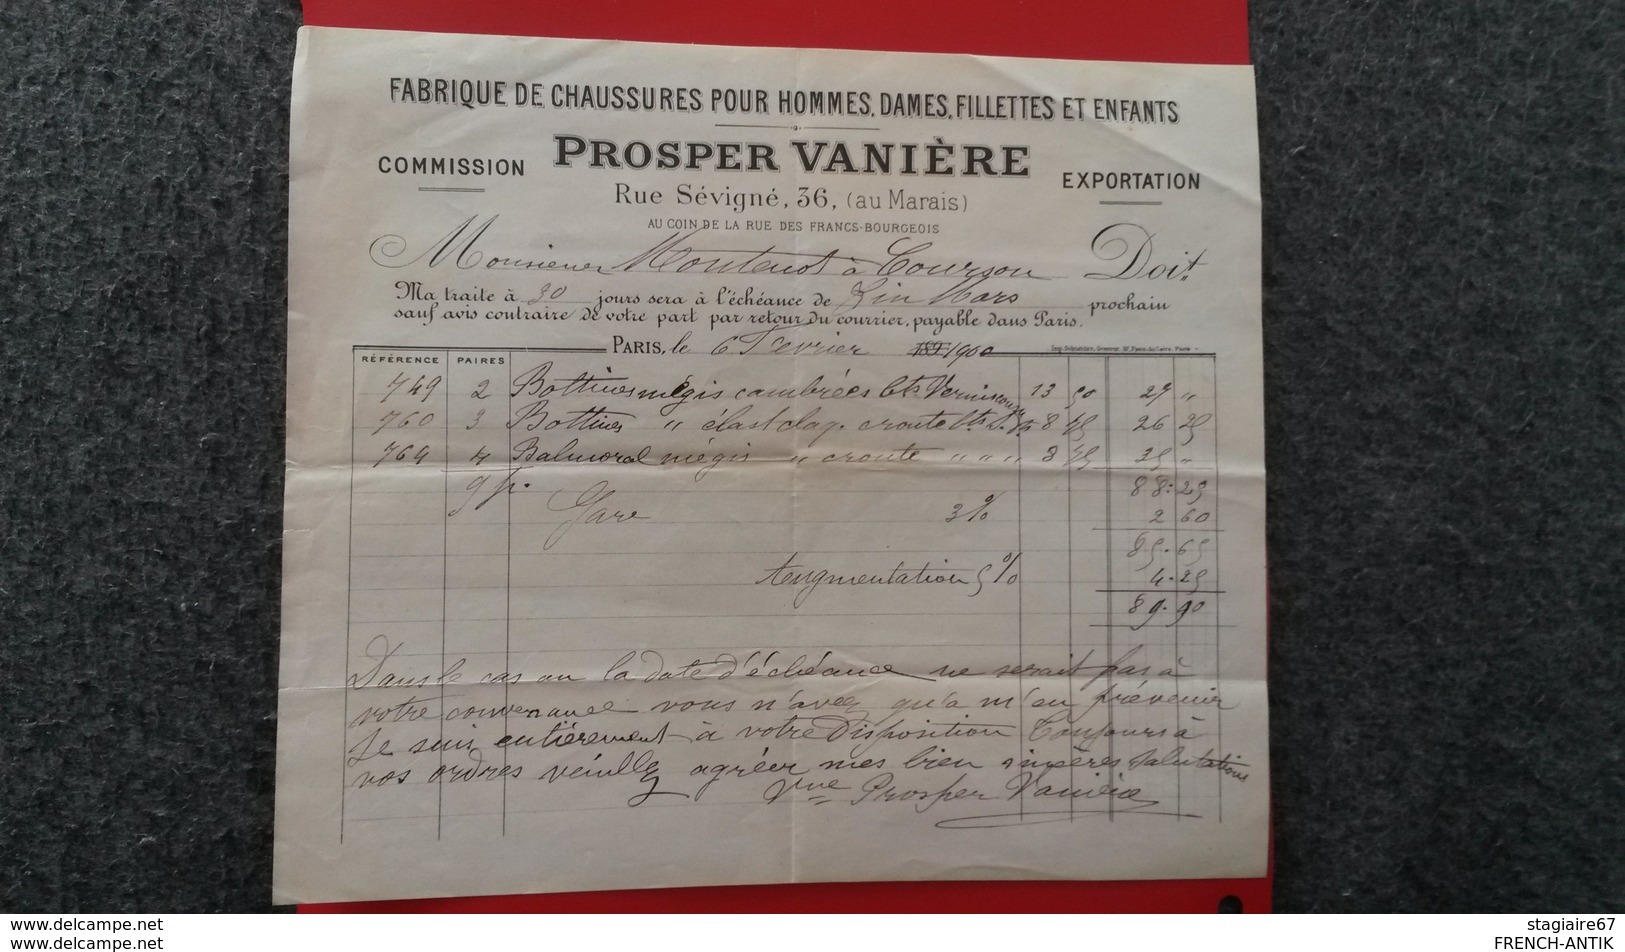 FABRIQUE DE CHAUSSURES POUR HOMMES, DAMES, FILLETTES ET ENFANTS
COMMISSION PROSPER VANIÈRE EXPORTATION
Rue Sévigné, 36, (au Marais)
AU COIN DE LA RUE DES FRANCS-BOURGEOIS
Monsieur Montenot à Courson Doit
Ma traite à 30 jours sera à l'échéance de Fin Mars prochain
sauf avis contraire de votre part par retour du courrier, payable dans Paris.
PARIS, le 6 Fevrier 189 1900
RÉFÉRENCE PAIRES
749 2 Bottines mégis cambrées bts Vernis 13 50 27 "
760 3 Bottines " élast claq. croute bts 8 75 26 25
764 4 Balmoral mégis " croute " " " 8 75 35 "
9 p. 88.25
Gare 3% 2 60
85.65
Augmentation 5% 4.25
89.90
Dans le cas ou la date d'échéance ne serait pas à
votre convenance vous n'avez qu'à m'en prévenir
Je suis entièrement à votre Disposition Toujours à
vos ordres veuillez agréer mes bien sincères salutations
Vve Prosper Vanière
delcampe.net
delcampe.net
stagiaire67
FRENCH-ANTIK